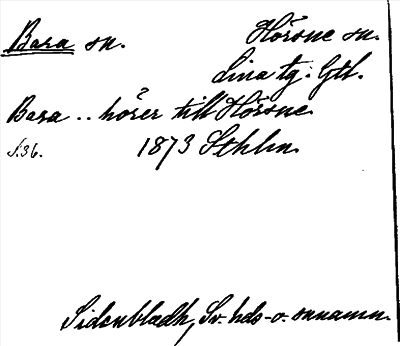 Bara sn. Hörsne sn.
Lina tg: Gtl.
Bara .. hörer till Hörsne.
S.36. 1873 Sthlm.
Sidenbladh, Sv. hds- o. snnamn.